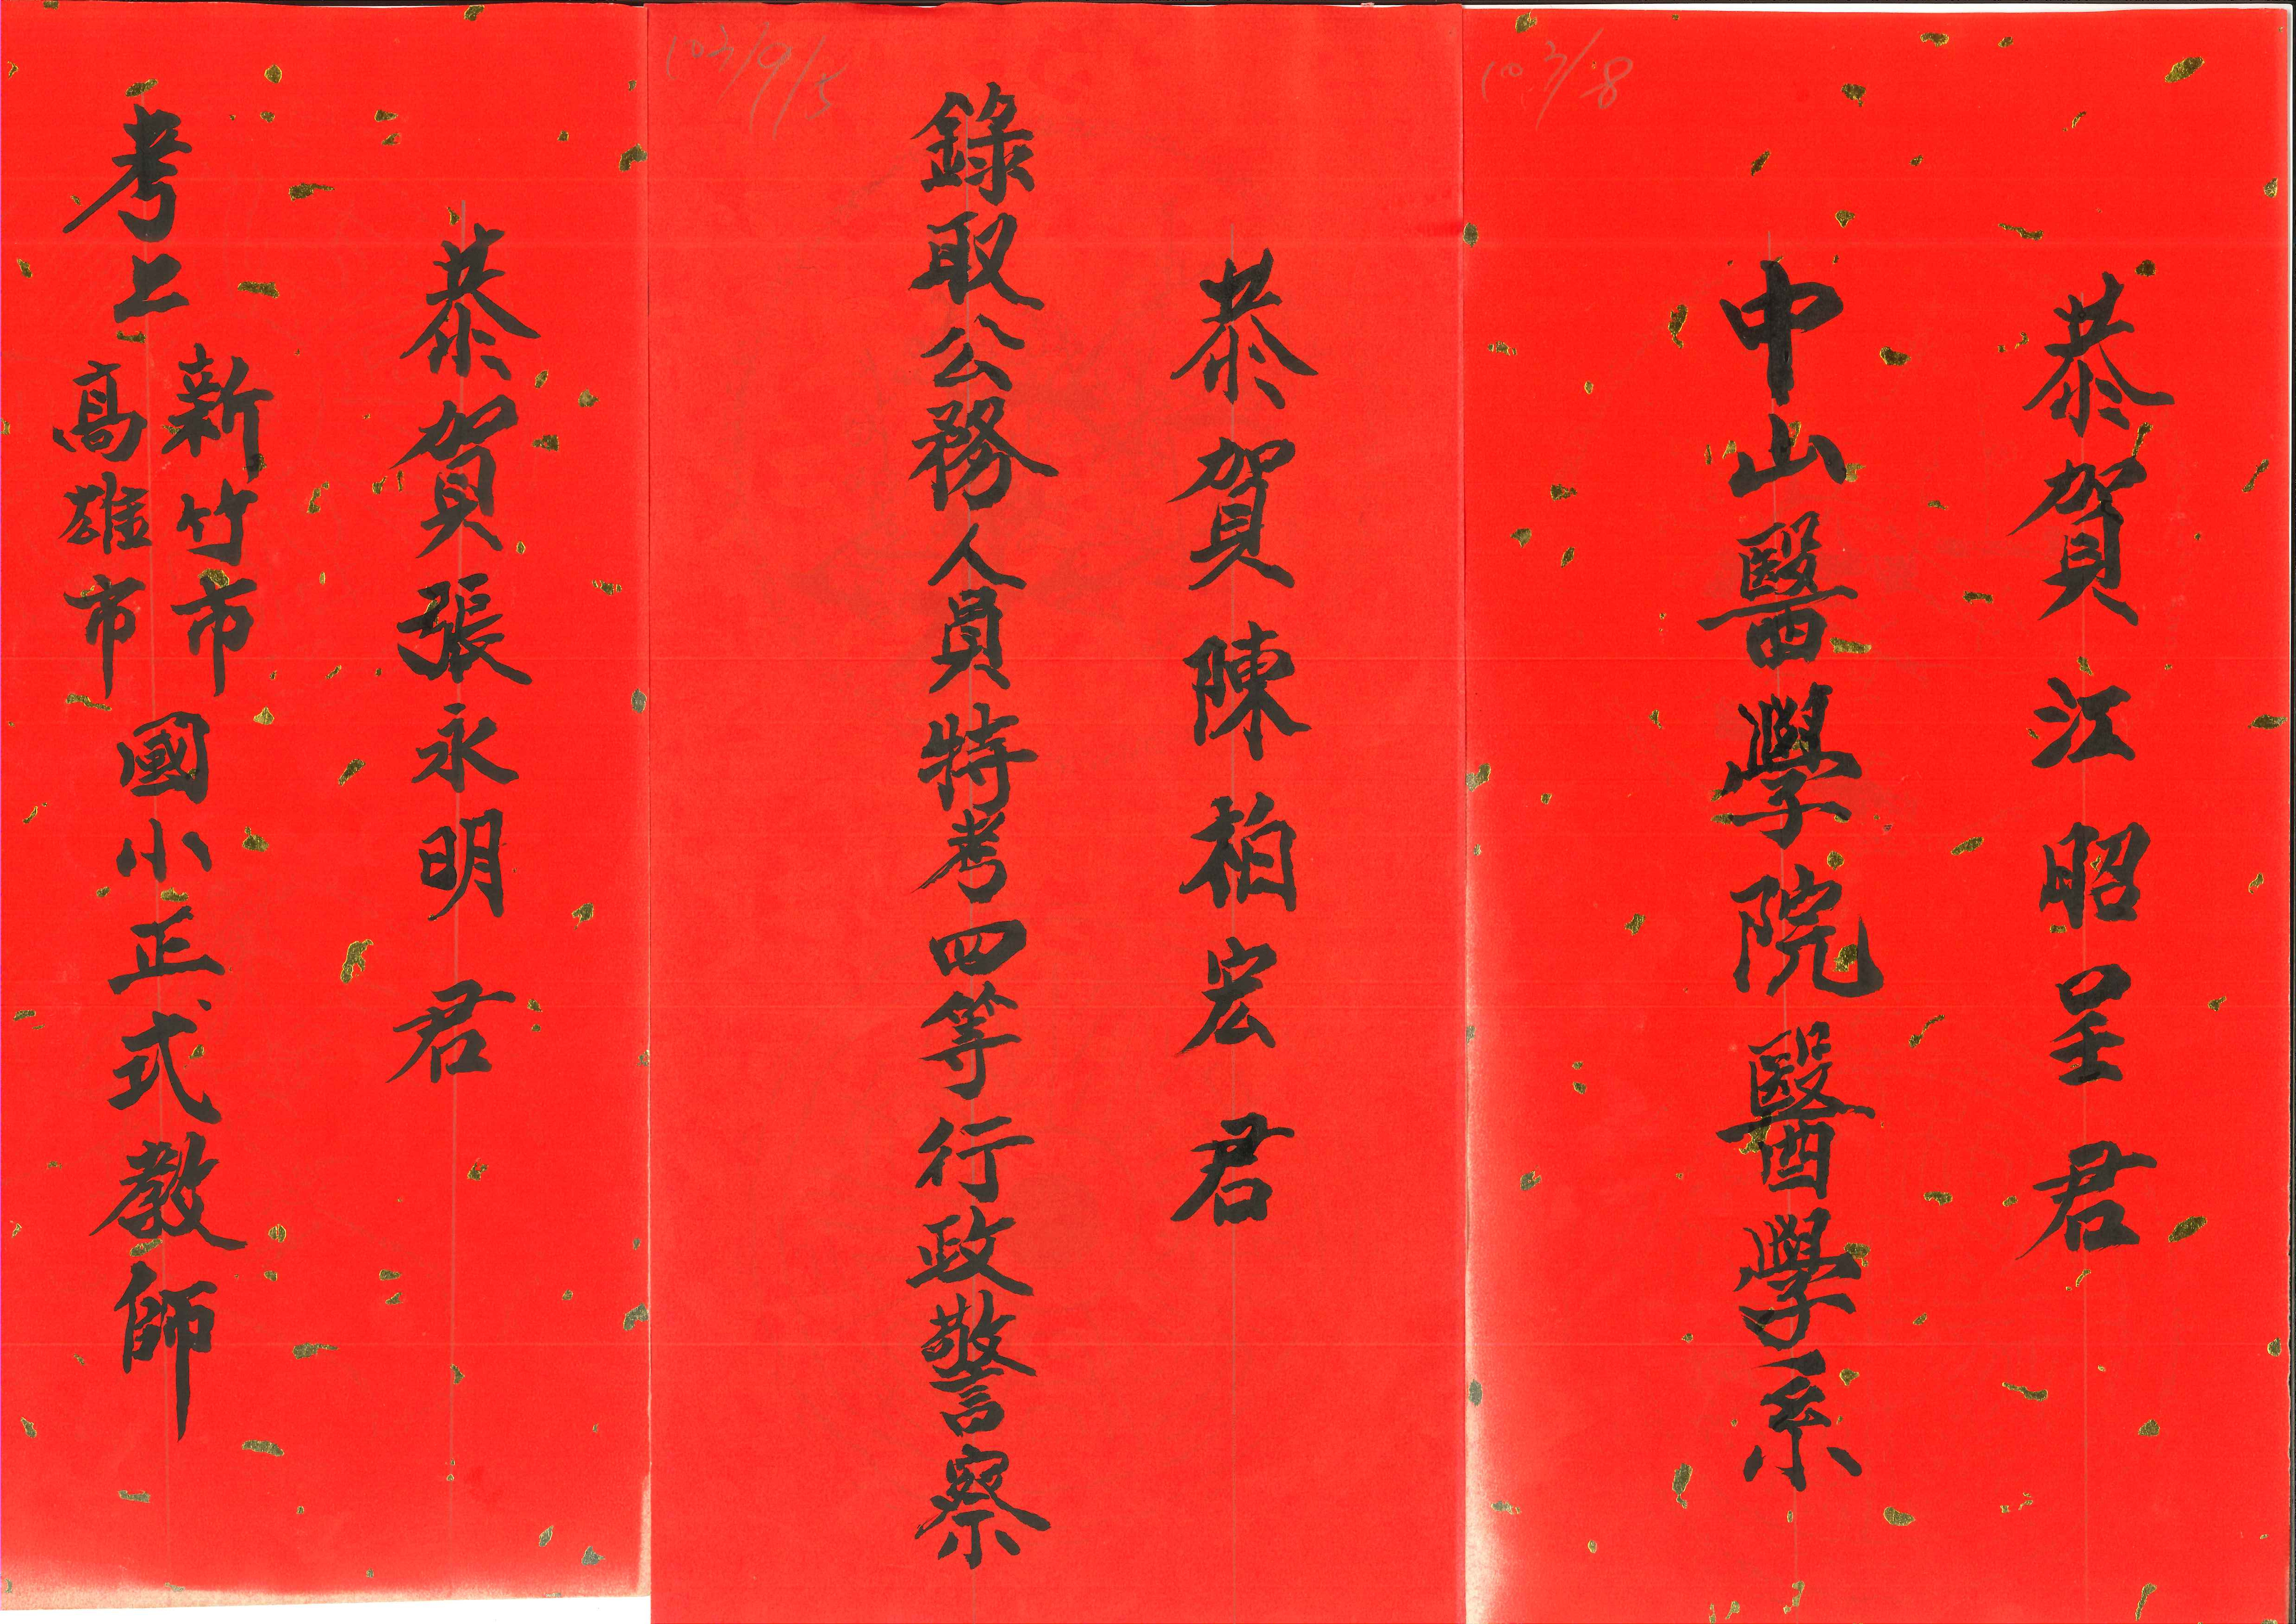 103/8
恭賀江昭呈君
中山醫學院醫學系
103/9/5
恭賀陳柏宏君
錄取公務人員特考四等行政警察
恭賀張永明君
考上新竹市高雄市國小正式教師